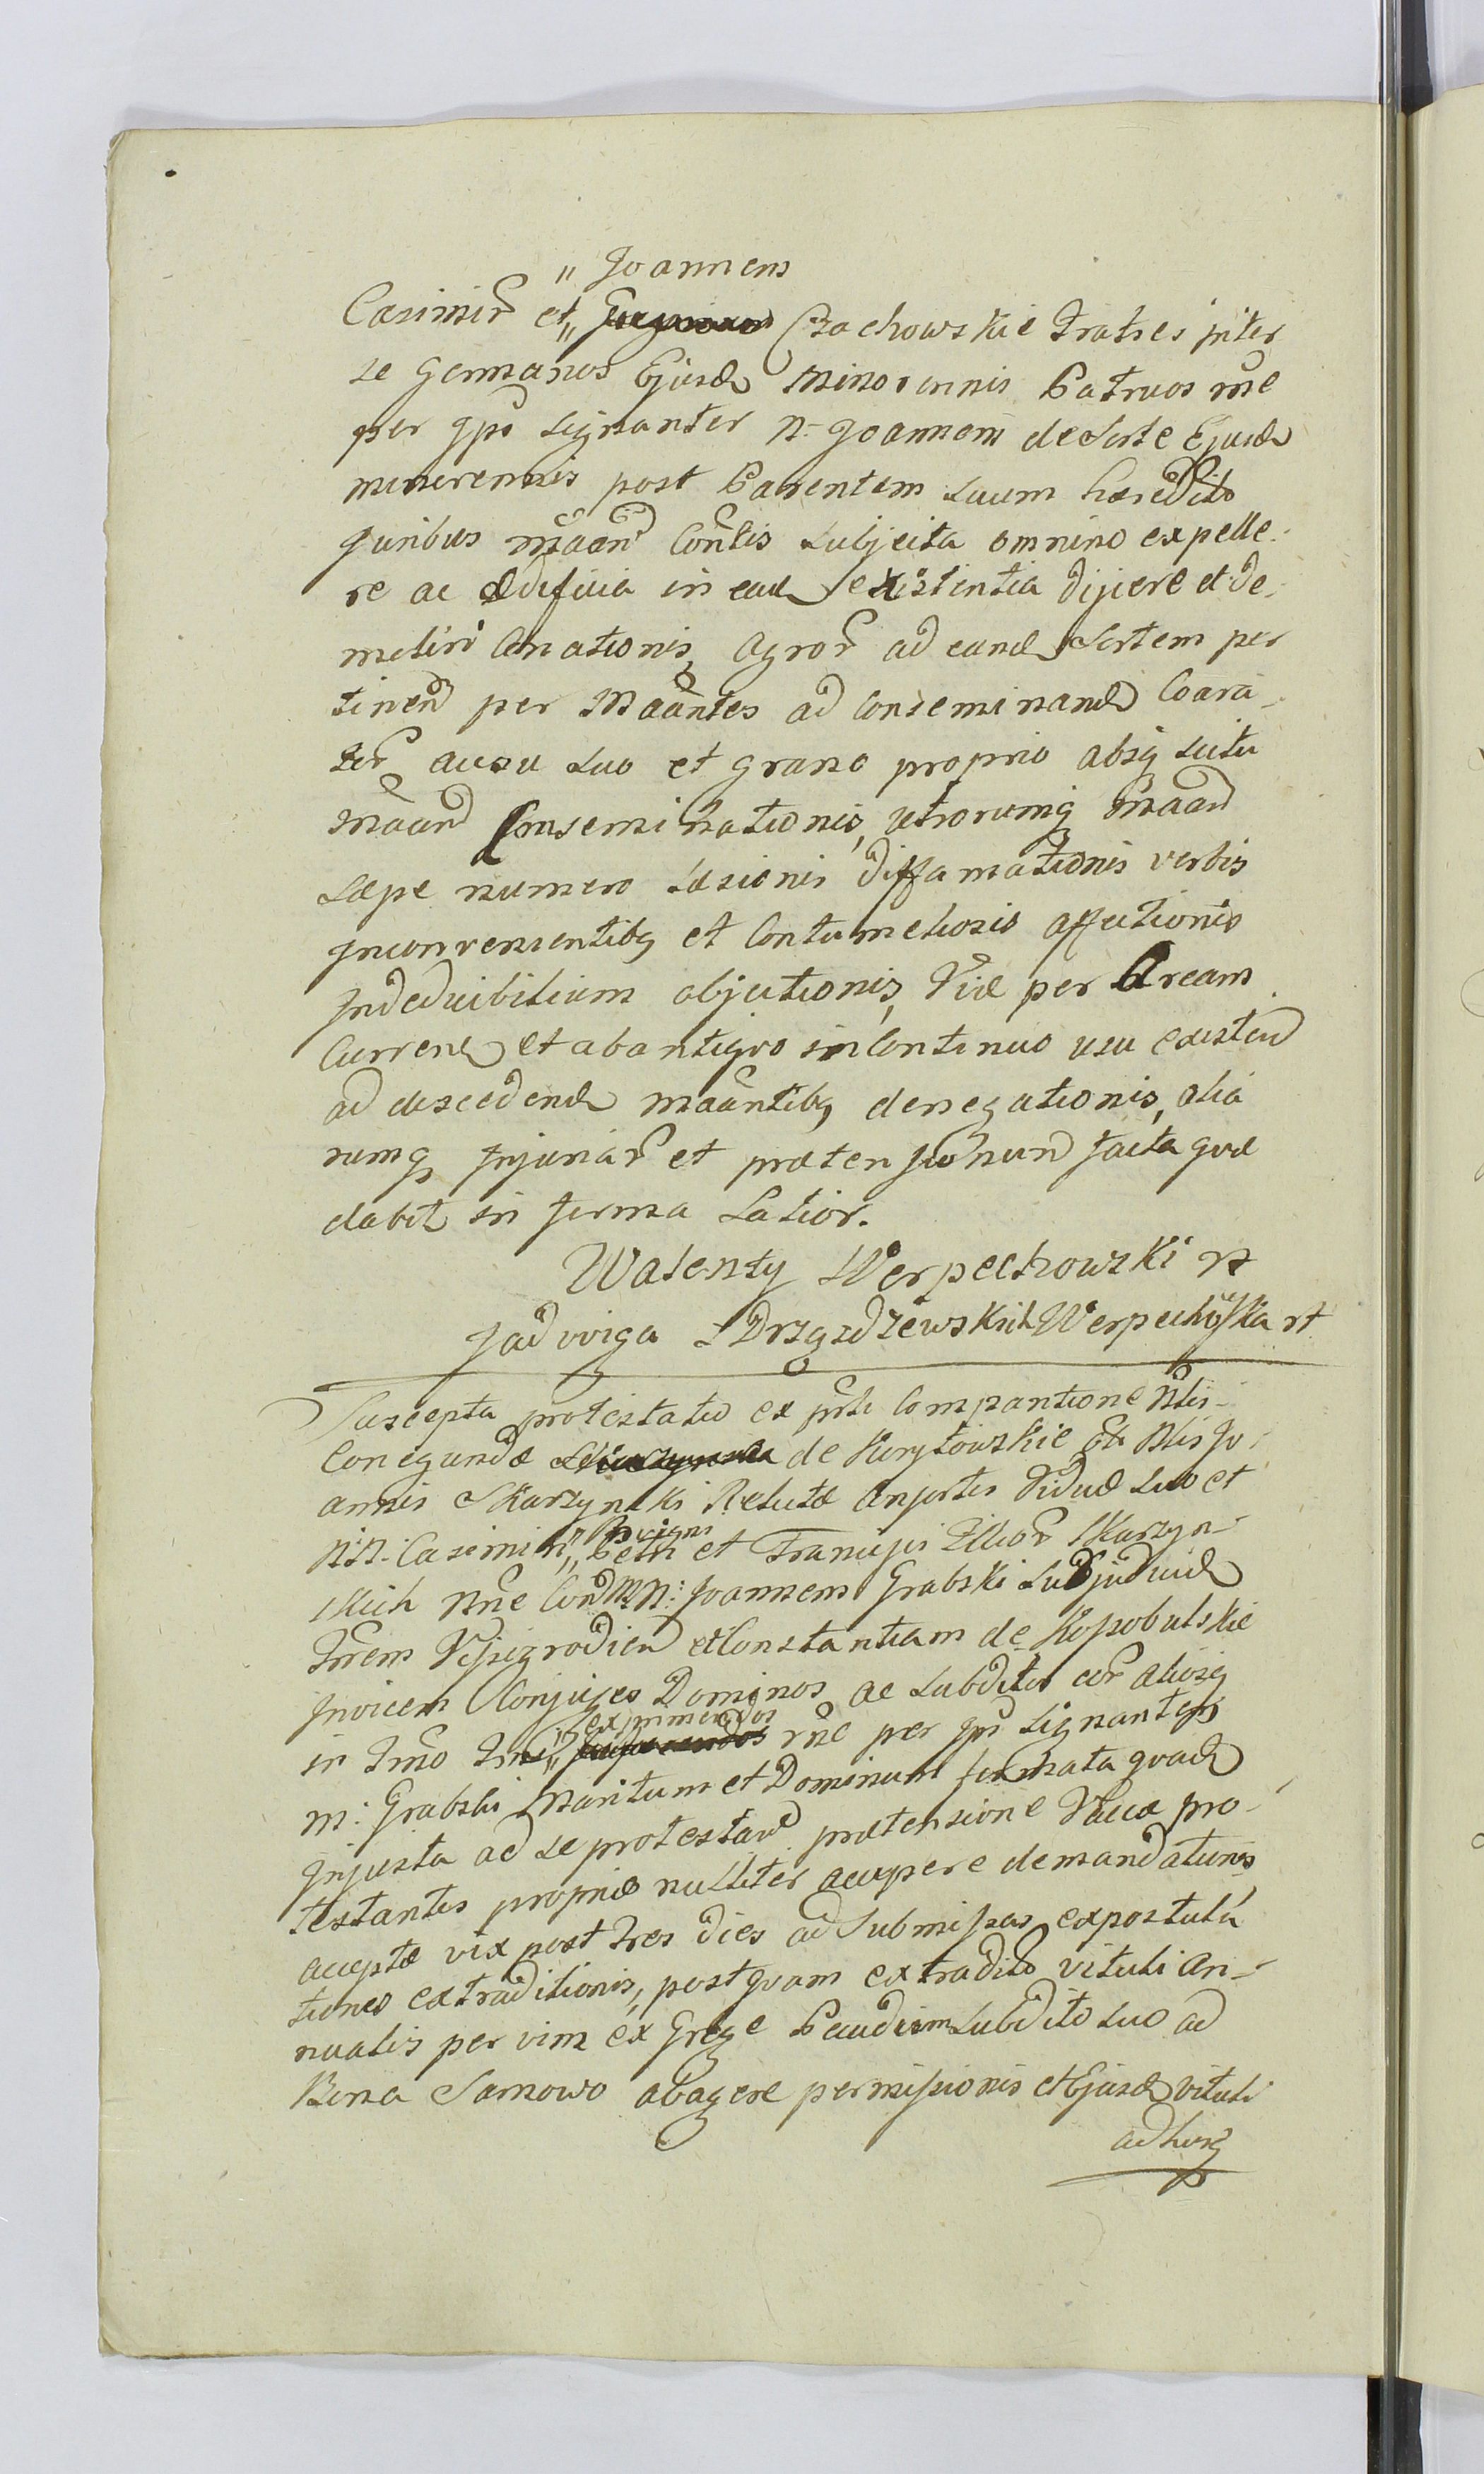 " Joannem
Casimir et " Czachowskie Fratres inter
se Germanos Ejusd Minorennis Patruos rne
per qpo signanter N. Joannem de Sorte Ejusd
minorennis post Parentem suum haeredito
Juribus maan Contis subjecta omnino expelle-
re ac aedificia in ead existentia dijicere et de-
moliri Conationis, Agror ad eand Sortem per
tinen per Maantes ad conseminand Coara-
tor ausu suo et grano proprio absq scitu
maan Conseminationis, utrorumq maan
saepe numero laesionis diffamationis verbis
inconvenientibq et Contumeliosis affectionis
Indeduibilium objectionis, Viae per Aream
Curren et ab antiquo in Continuo usu existen
ad discedend maantibq denegationis, alia
rumq Injuriar et praetensionum facta quae
dabit in forma Latior.
Walenty Werpechowski rt
Jadwiga z Drzązdżewskich Werpechoska rt
Suscepta protestatio ex prti Comparitione Nlis
Conegundae de Kurytowskie olim Nlis Jo-
annis Skarzynski Relictae Consortis Viduae suo et
NN. Casimiri, " Petri et Francisci Filior Skarzyn-
skich nne Con MN: Joannem Grabski Subjudicid
Trrem Vissegrodien et Constantiam de Kossobutskie
Invicem Conjuges Dominos ac subditos eor aliosq
in Trno " exprimendos rne per qpo signanter
M: Grabski Maritum et Dominum formata quad
Injusta ad se protestan praetensione Vacca pro-
testantis propriae nulliter accipere demandationis,
acceptae vix post tres dies ad submissas expostula-
tiones extraditionis, postquam extradito vituli An-
nualis per vim ex Grege Pecudum subdito suo ad
Bona Sarnowo abagere permissionis et Ejusd vituli
adhucq